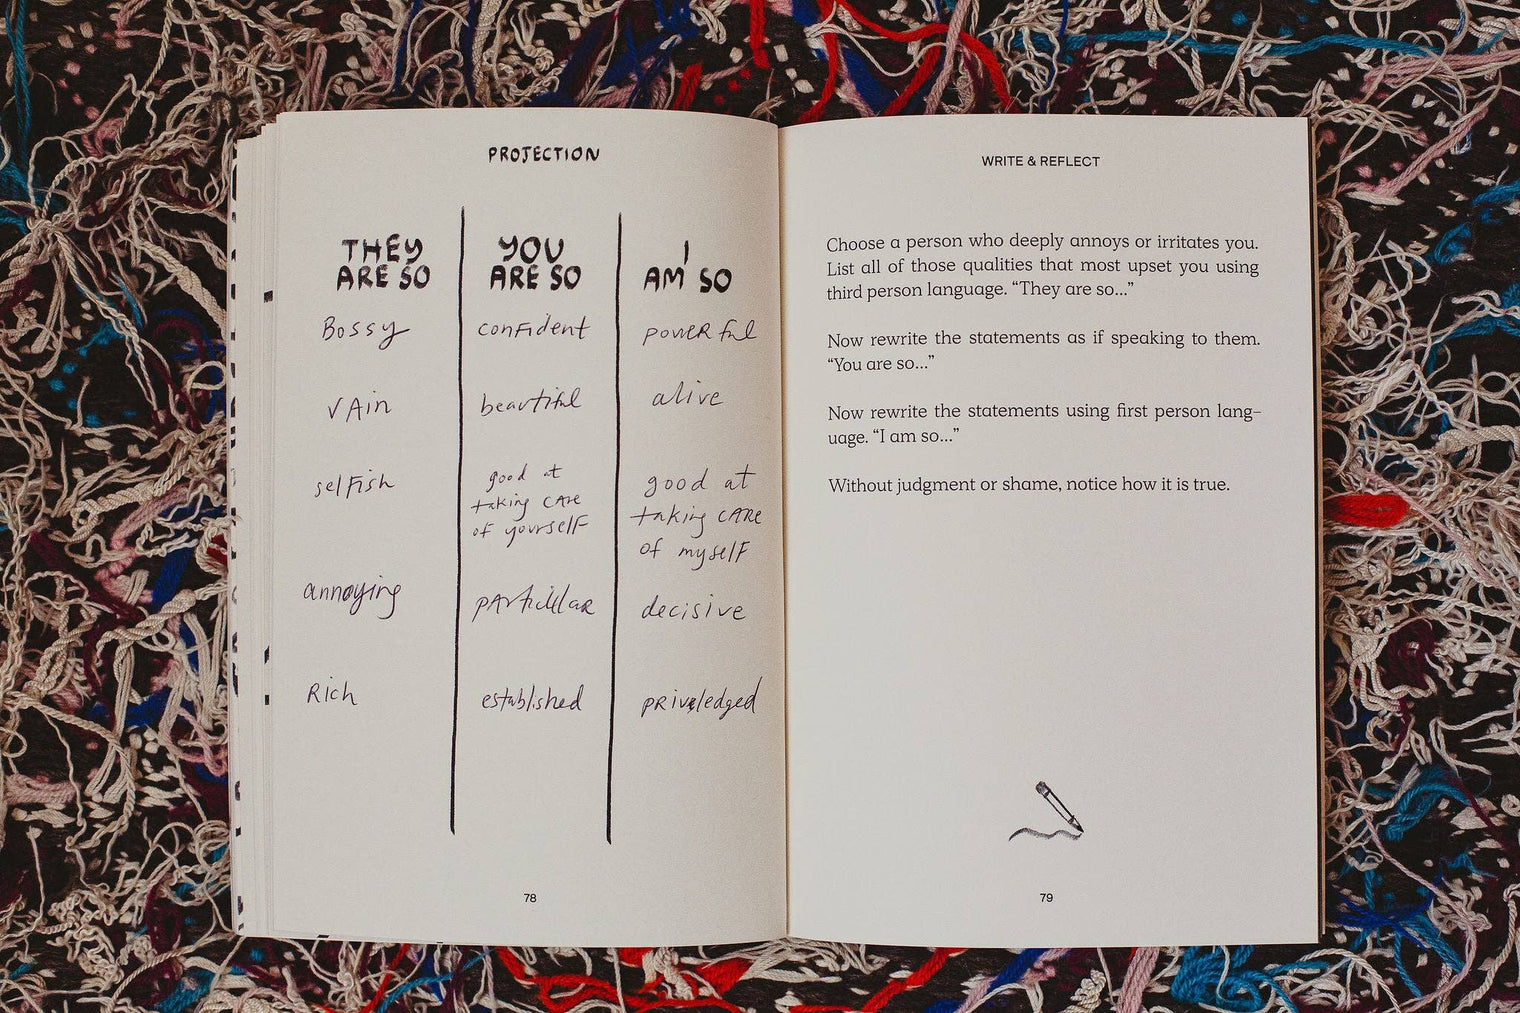 PROJECTION
THEY
ARE SO
YOU
ARE SO
I
AM SO
Bossy
confident
powerful
vain
beautiful
alive
selfish
good at
taking care
of yourself
good at
taking care
of myself
annoying
particular
decisive
Rich
established
priveledged
78
WRITE & REFLECT
Choose a person who deeply annoys or irritates you.
List all of those qualities that most upset you using
third person language. “They are so...”
Now rewrite the statements as if speaking to them.
“You are so...”
Now rewrite the statements using first person lang-
uage. “I am so...”
Without judgment or shame, notice how it is true.
79